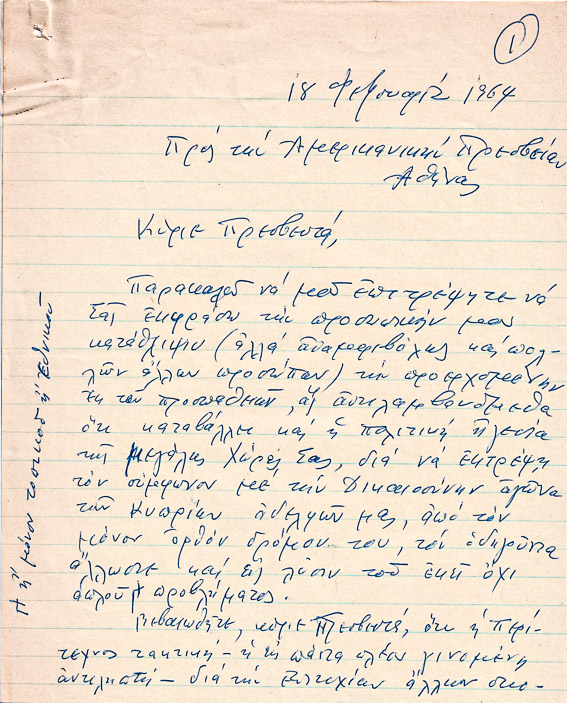 1
18 Φεβρουαρίου 1964
Πρός τήν Ἀμερικανικήν Πρεσβείαν
Ἀθήνας
Κύριε Πρεσβευτά,
Παρακαλῶ νά μοῦ ἐπιτρέψητε νά
Σᾶς ἐκφράσω τήν προσωπικήν μου
κατάθλιψιν (ἀλλά ἀναμφιβόλως καί πολ-
λῶν ἄλλων προσώπων) τήν προερχομένην
ἐκ τῶν προσπαθειῶν, ἅς ἀντιλαμβανόμεθα
ὅτι καταβάλλει καί ἡ πολιτική ἡγεσία
τῆς μεγάλης Χώρας Σας, διά νά ἐκτρέψῃ
τόν σύμφωνον μέ τήν Δικαιοσύνην ἀγῶνα
τῶν Κυπρίων ἀδελφῶν μας, ἀπό τόν
μόνον ὀρθόν δρόμον του, τόν ὁδηγοῦντα
ἄλλωστε καί εἰς λύσιν τοῦ ἐκεῖ ὄχι
ἁπλοῦ προβλήματος.
Βεβαιωθῆτε, κύριε Πρεσβευτά, ὅτι ἡ περί-
τεχνος τακτική – ἡ εἰς πάντα πλέον γινομένη
ἀντιληπτή – διά τήν ἐπιτυχίαν ἄλλων στό-
ἤ μόνον τοπικοῦ ἤ ἐθνικοῦ